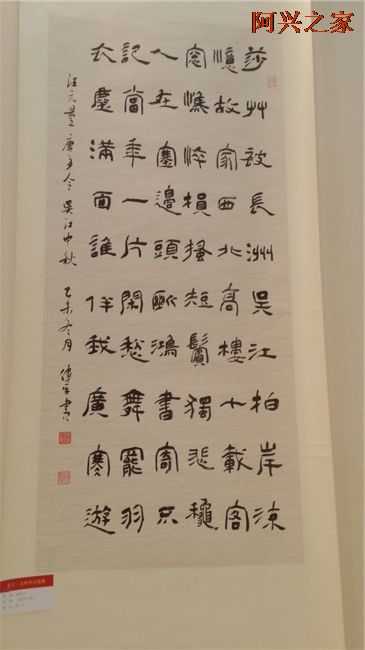 阿兴之家
莎艸被長洲吳江拍岸流
憶故家西北高樓十載客
窗憔悴損搔短鬢獨悲龝
人在塞邊頭斷鴻書寄不
記當年一片閑愁舞罷羽
衣塵滿面誰伴我廣寒遊
汪元量 唐多令 吳江中秋 乙未冬月 書